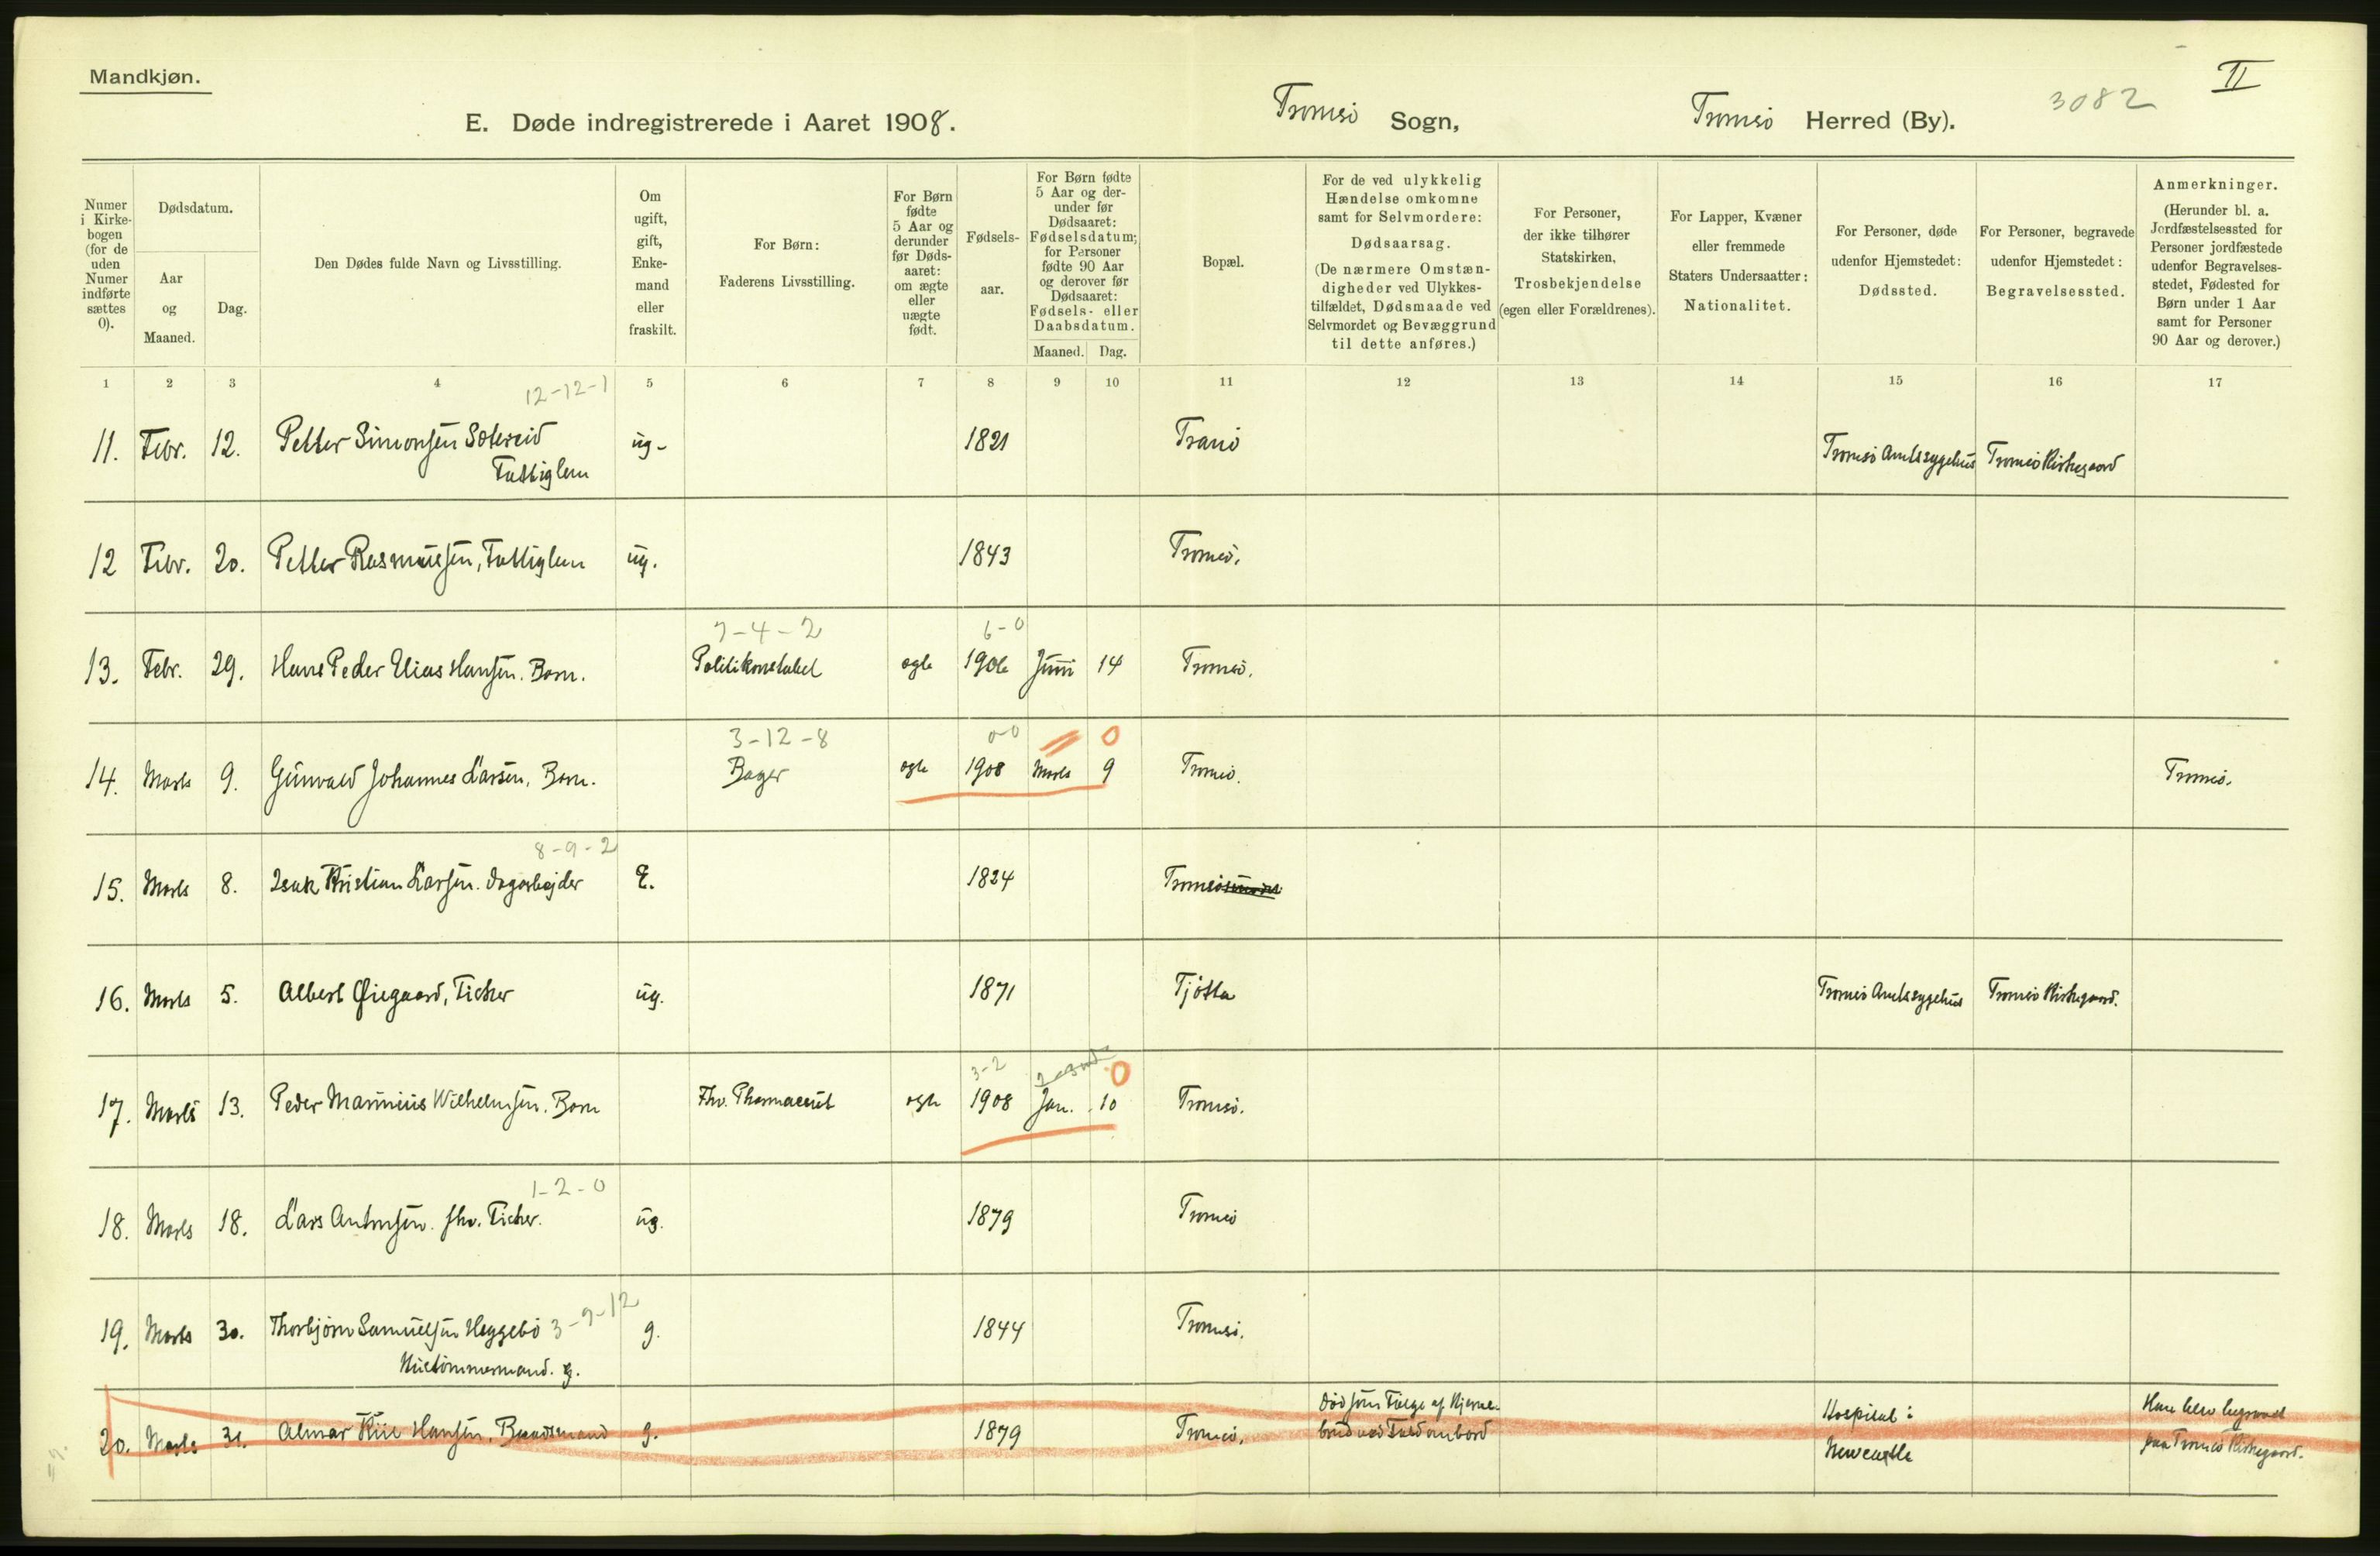 Mandkjøn.
II
3082
E. Døde indregistrerede i Aaret 1908.
Tromsö Sogn,
Tromsö Herred (By).
Numer i Kirkebogen (for de uden Numer indførte sættes 0).
Dødsdatum.
Aar og Maaned.
Dag.
Den Dødes fulde Navn og Livsstilling.
Om ugift, gift, Enkemand eller fraskilt.
For Børn: Faderens Livsstilling.
For Børn fødte 5 Aar og derunder før Dødsaaret: om ægte eller uægte født.
Fødselsaar.
For Børn fødte 5 Aar og derunder før Dødsaaret: Fødselsdatum; for Personer fødte 90 Aar og derover før Dødsaaret: Fødsels- eller Daabsdatum.
Maaned. Dag.
Bopæl.
For de ved ulykkelig Hændelse omkomne samt for Selvmordere: Dødsaarsag. (De nærmere Omstændigheder ved Ulykkestilfældet, Dødsmaade ved Selvmordet og Bevæggrund til dette anføres.)
For Personer, der ikke tilhører Statskirken, Trosbekjendelse (egen eller Forældrenes).
For Lapper, Kvæner eller fremmede Staters Undersaatter: Nationalitet.
For Personer, døde udenfor Hjemstedet: Dødssted.
For Personer, begravede udenfor Hjemstedet: Begravelsessted.
Anmerkninger. (Herunder bl. a. Jordfæstelsessted for Personer jordfæstede udenfor Begravelsesstedet, Fødested for Børn under 1 Aar samt for Personer 90 Aar og derover.)
1 2 3 4 5 6 7 8 9 10 11 12 13 14 15 16 17
12-12-1
11. Febr. 12. Petter Simonsen Sötereid ug- 1821 Tranö Tromsö Amtssygehus Tromsö Kirkegaard
Fattiglem
12 Febr. 20. Petter Rasmussen, Fattiglem ug. 1843 Tromsö.
7-4-2 6-0
13. Febr. 29. Hans Peder Elias Hansen. Barn. Politikonstabel ægte 1906 Juni 14 Tromsö.
3-12-8 0-0 0
14. Marts 9. Gunvald Johannes Larsen, Barn. Bager ægte 1908 Marts 9 Tromsö. Tromsö.
8-9-2
15. Marts 8. Isak Kristian Larsen. Dagarbejder E. 1824 Tromsö
16. Marts 5. Albert Øiegaard, Fisker ug. 1871 Tjötta Tromsö Amtssygehus Tromsö Kirkegaard.
3-2 0
17. Marts 13. Peder Marinius Wilhelmsen. Barn Fhv. Pharmaceut ægte 1908 Jan. 10 Tromsö.
1-2-0
18. Marts 18. Lars Antonsen. fhv. Fisker. ug. 1879 Tromsö
19. Marts 30. Thorbjörn Samuelsen Heggebö 3-9-12 g. 1844 Tromsö.
Hustömmermand. g.
20. Marts 31. Almar Kiil Hansen. Baadsmand g. 1879 Tromsö. Död som Fölge af Hjerne-
brud ved Fald ombord
Hospital i
Newcastle
Han blev begravet
paa Tromsö Kirkegaard.